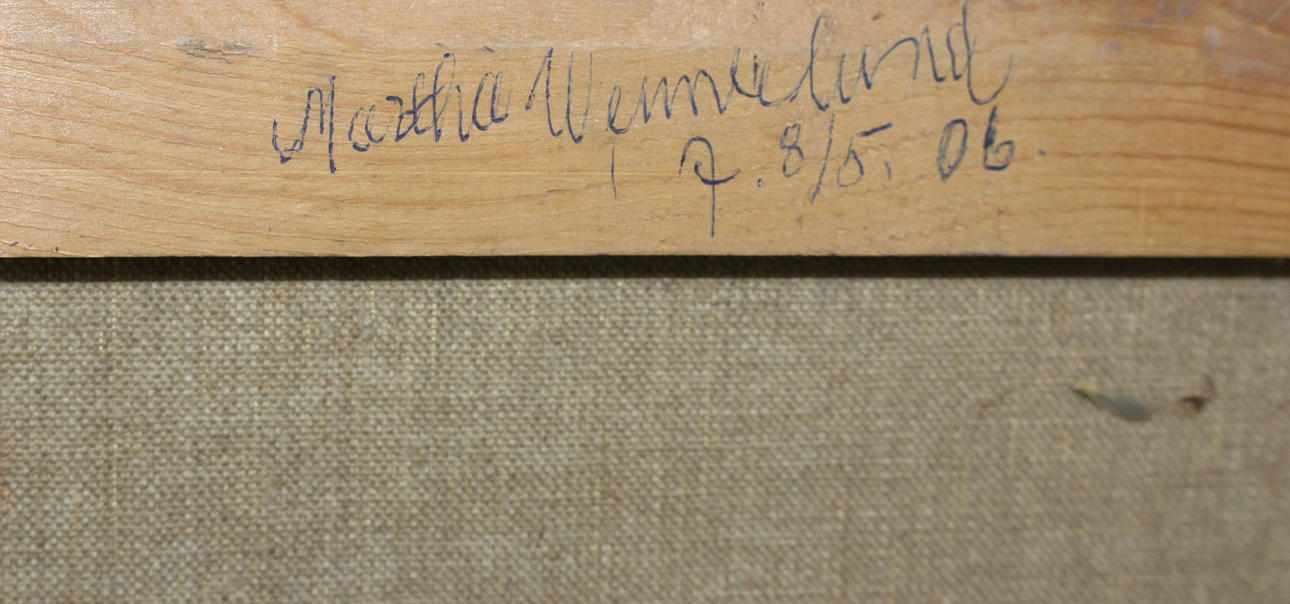 Martha Wennerlund
f. 8/5. 06.